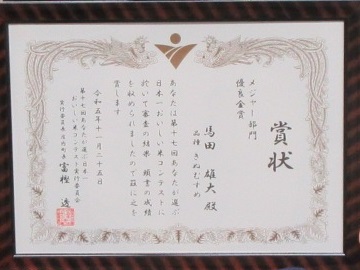 賞状
メジャー部門
優良金賞
馬田雄大殿
品種 きぬむすめ
あなたは第十七回あなたが選ぶ
日本一おいしい米コンテストに
於いて審査の結果 頭書の成績
を収められましたので茲に之を
賞します
令和五年十一月二十五日
第十七回あなたが選ぶ日本一
おいしい米コンテスト実行委員会
実行委員長庄内町長 富樫 透